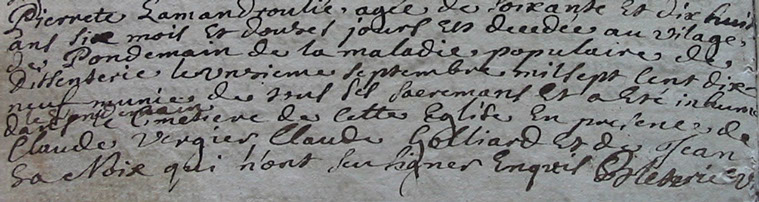 Pierrete Lamandroulie, agée de soixante Et dix huit
ans six mois et douses jours Est decedée au vilage
de Pondemain de la maladie populaire de
dissenterie le unsieme septembre mil sept Cent dix
neuf munie de tous ses sacremans Et a Eté inhumé
dans le Cimetiere de Cette Eglise En presence de
Claude Vergier Claude Colliard Et de Jean
La Noix qui n'ont seu signer Enquis